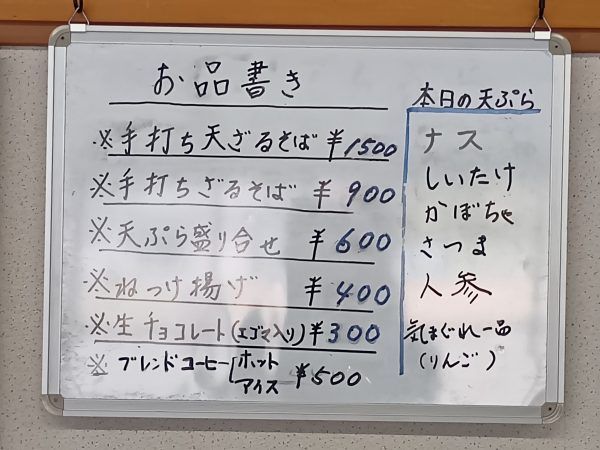 お品書き
※手打ち天ざるそば ¥1500
※手打ちざるそば ¥900
※天ぷら盛り合せ ¥600
※ねっけ揚げ ¥400
※生チョコレート(エゴマ入り) ¥300
※ブレンドコーヒー ホット アイス ¥500
本日の天ぷら
ナス
しいたけ
かぼちゃ
さつま
人参
気まぐれ一品
(りんご)